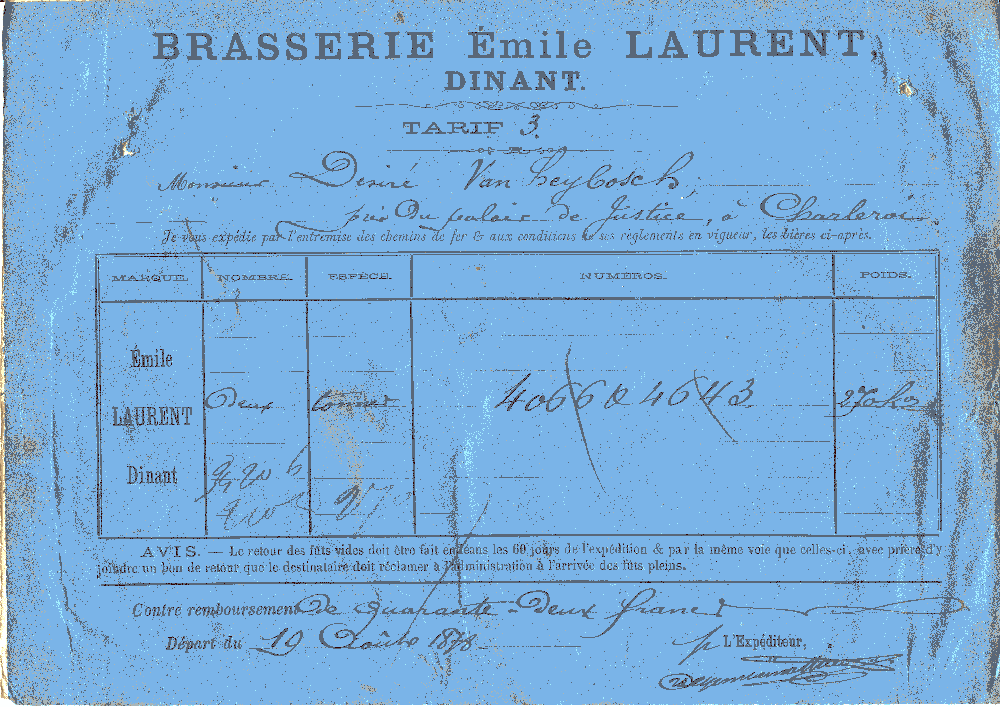 BRASSERIE Émile LAURENT,
DINANT.
TARIF 3.
Monsieur Désiré Van Heybosch,
près du palais de Justice, à Charleroi.
Je vous expédie par l'entremise des chemins de fer & aux conditions de ses règlements en vigueur, les bières ci-après.
MARQUE. NOMBRE. ESPÈCE. NUMÉROS. POIDS.
Émile
LAURENT Deux 4066 4643 270 ko
Dinant
AVIS. — Le retour des fûts vides doit être fait endéans les 60 jours de l'expédition & par la même voie que celles-ci, avec prière d'y
joindre un bon de retour que le destinataire doit réclamer à l'administration à l'arrivée des fûts pleins.
Contre remboursement de quarante-deux francs
Départ du 19 Août 1878
p L'Expéditeur,